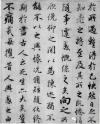 於所遇蹔得於己怏然自足不
知老之將至及其所之既惓情
隨事遷感慨係之矣向之所欣
俛仰之閒以為陳迹猶不
能不以之興懷況脩短隨化終
期於盡古人云死生亦大矣豈
不痛哉每攬昔人興感之由